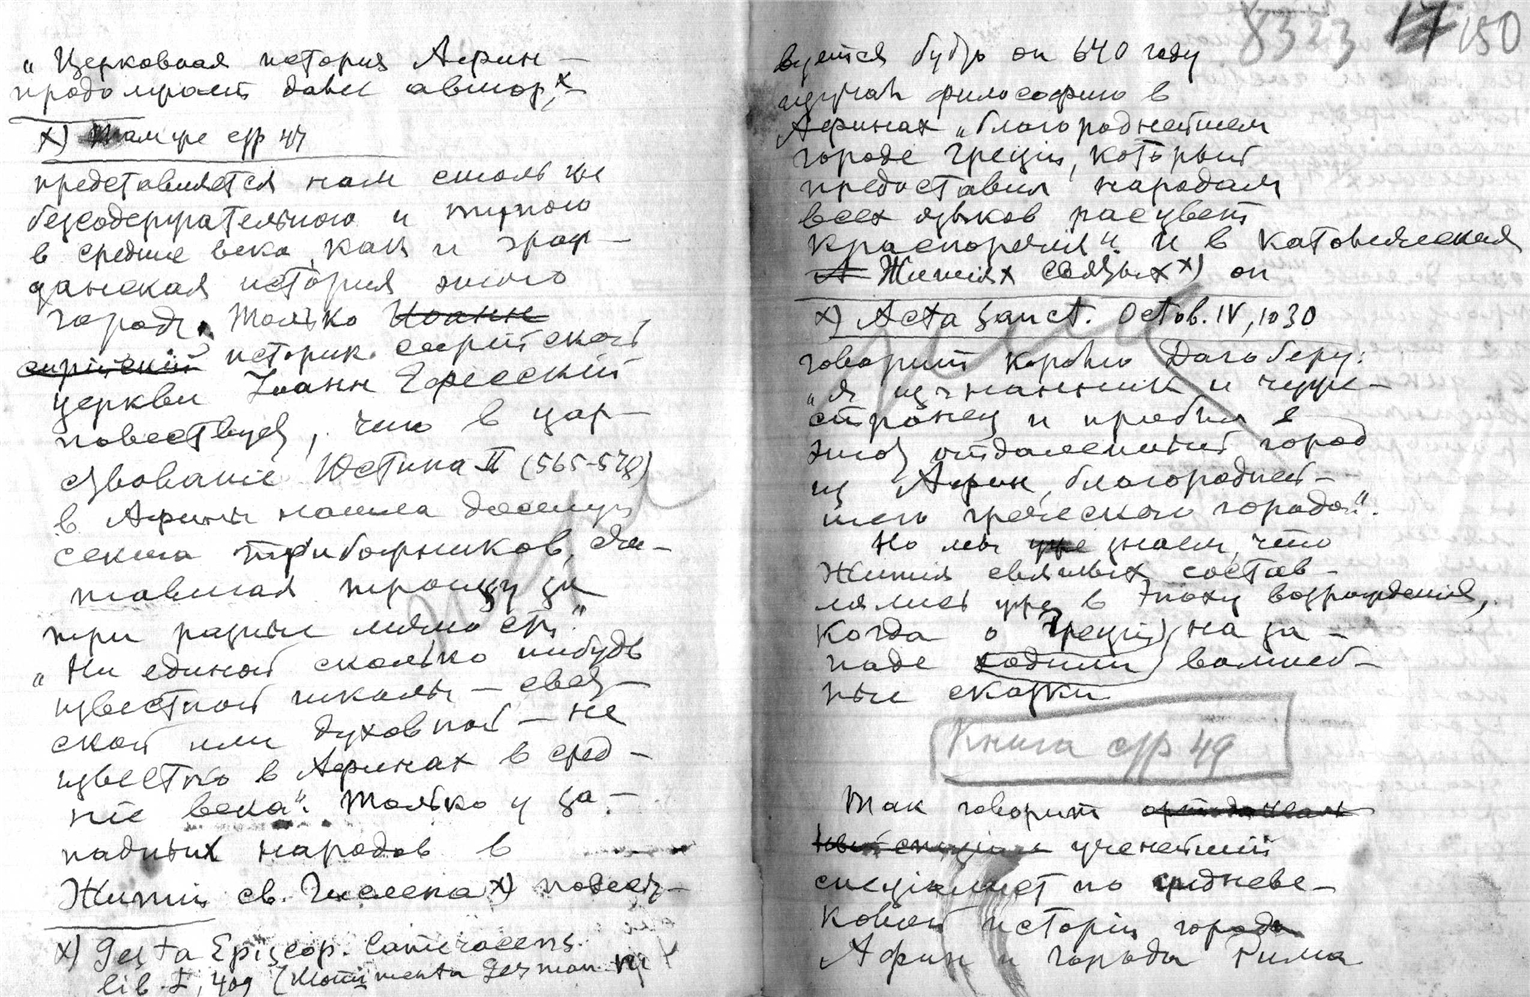 „Церковная история Афин —
продолжает далее автор, х —
х) Там же стр 47
представляется нам столь же
безсодержательною и темною
в средние века, как и граж —
данская история этого
города. Только Иоанн
сирийский историк сирийской
церкви Iоанн Ефесский
повествует, что в цар —
ствованiе Юстина II (565-578)
в Афины нашла доступ
секта требожников, счи —
тавшая троицу за
три разные личности."
„Ни единой сколько нибудь
известной школы — свет —
ской или духовной — не
известно в Афинах в сред —
ніе века". Только у за —
падных народов в
Житіи св. Гислена х) повест —
х) Gesta Episcop. Cameracens.
lib. I, 409 (Monumenta German.
8323 17 150
вуется будто он 640 году
изучал философию в
Афинах „благороднейшем
городе Греціи, который
предоставил народам
всех языков расцвет
красноречия". И в католическая
А Житіях святых х) он
х) Acta Sanct. Octob. IV, 1030
говорит королю Дагоберу:
„я изгнанник и чуже —
странец и прибыл в
этот отдаленный город
из Афин, благородней —
шего греческого города".
Но мы уже знаем, что
Житія святых состав —
лялись уже в эпоху возрожденія,
когда о Греціи на за —
паде ходили волшеб —
ные сказки
Книга стр 49
Так говорит
ученейший
специалист по средневе —
ковой исторіи города
Афин и города Рима